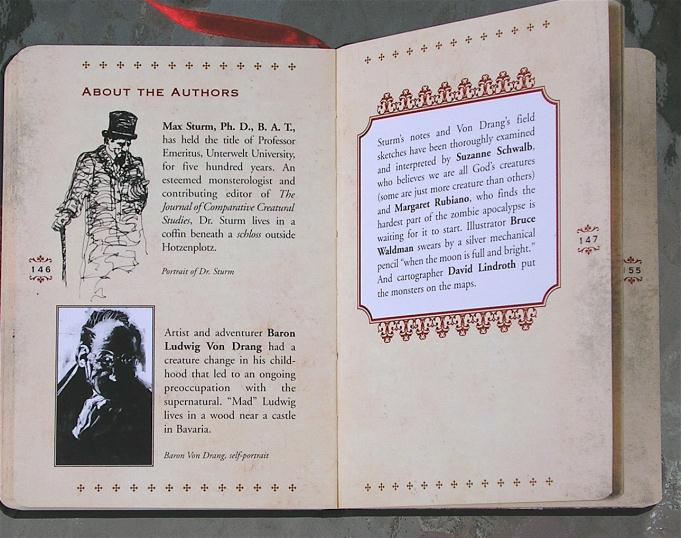 ABOUT THE AUTHORS
Max Sturm, Ph. D., B. A. T.,
has held the title of Professor
Emeritus, Unterwelt University,
for five hundred years. An
esteemed monsterologist and
contributing editor of The
Journal of Comparative Creatural
Studies, Dr. Sturm lives in a
coffin beneath a schloss outside
Hotzenplotz.
Portrait of Dr. Sturm
146
Artist and adventurer Baron
Ludwig Von Drang had a
creature change in his child-
hood that led to an ongoing
preoccupation with the
supernatural. “Mad” Ludwig
lives in a wood near a castle
in Bavaria.
Baron Von Drang, self-portrait
Sturm's notes and Von Drang's field
sketches have been thoroughly examined
and interpreted by Suzanne Schwalb,
who believes we are all God's creatures
(some are just more creature than others)
and Margaret Rubiano, who finds the
hardest part of the zombie apocalypse is
waiting for it to start. Illustrator Bruce
Waldman swears by a silver mechanical
pencil “when the moon is full and bright.”
And cartographer David Lindroth put
the monsters on the maps.
147
55